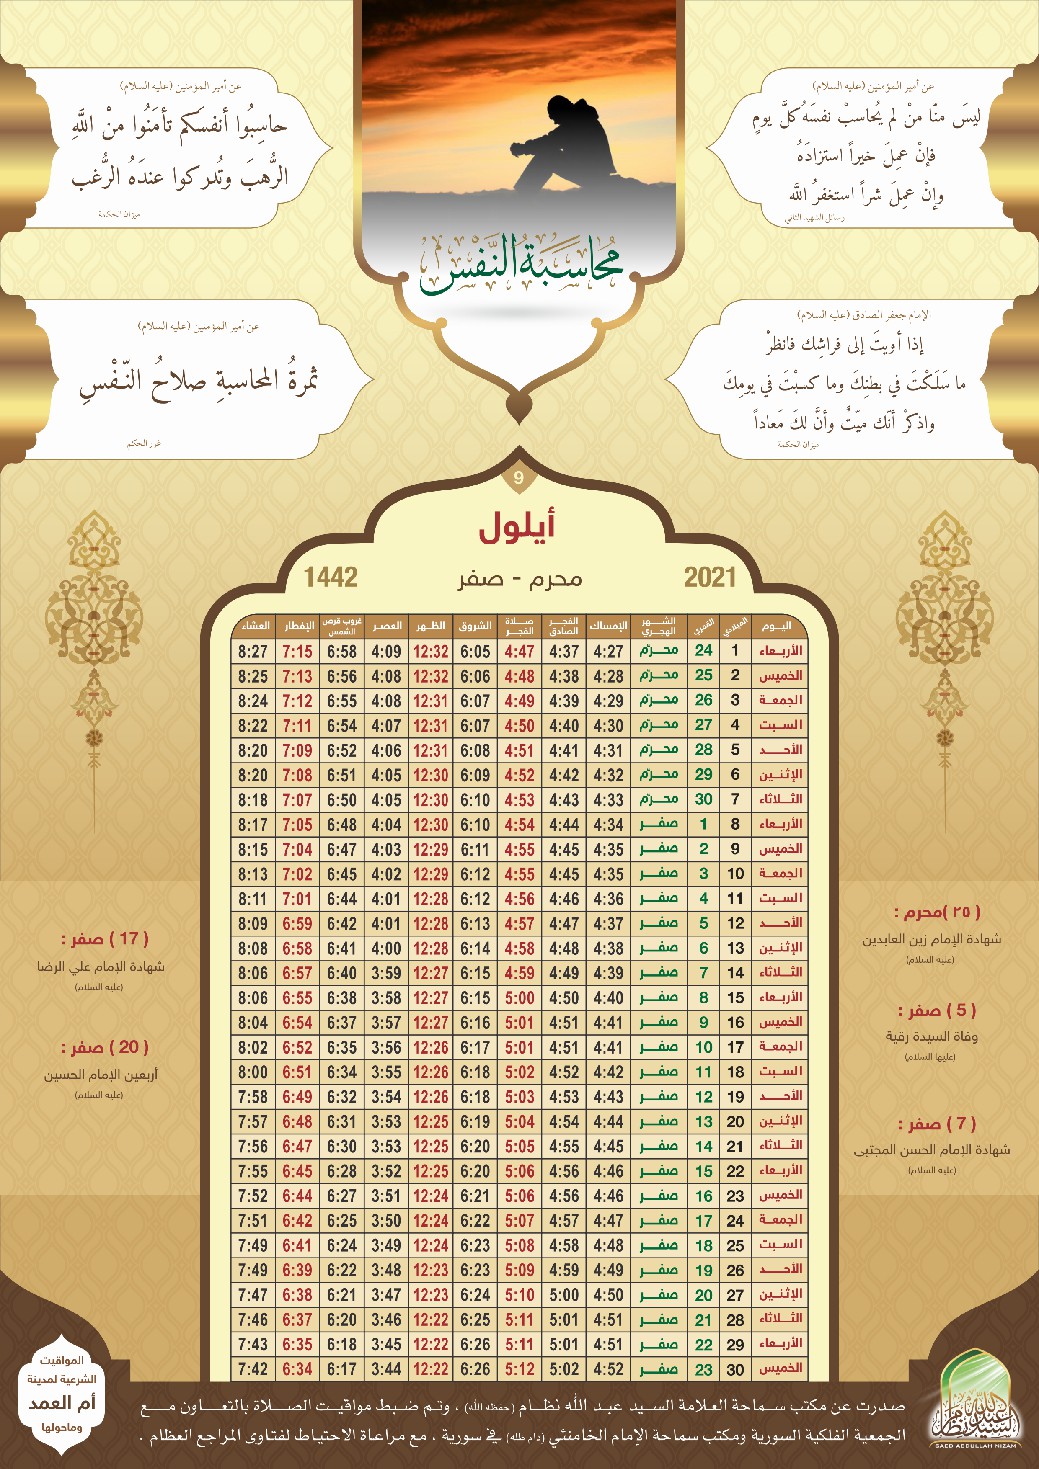 عن أمير المؤمنين (عليه السلام)
ليسَ منّا منْ لم يُحاسبْ نفسَهُ كلَّ يومٍ
فإنْ عمِلَ خيراً استزادَهُ
وإنْ عمِلَ شراً استغفرُ اللّه
رسائل الشهيد الثاني
عن أمير المؤمنين (عليه السلام)
حاسِبُوا أنفسَكم تأمَنُوا منْ اللَّهِ
الرَّهبَ وتُدركوا عندَهُ الرَّغب
ميزان الحكمة
مُحَاسَبَةُ النَّفْسِ
الإمام جعفر الصادق (عليه السلام)
إذا أويتَ إلى فراشِك فانظرْ
ما سَلَكْتَ في بطنِكَ وما كسبْتَ في يومِكَ
واذكرْ أنّك ميّتٌ وأنَّ لكَ مَعاداً
ميزان الحكمة
عن أمير المؤمنين (عليه السلام)
ثمرةُ المحاسبةِ صلاحُ النّفْسِ
غرر الحكم
9
أيلول
2021 محرم - صفر 1442
اليوم الميلادي القمري الشهر الهجري الإمساك الفجر الصادق صلاة الفجر الشروق الظهر العصر غروب قرص الشمس الإفطار العشاء
الأربعاء 1 24 محرم 4:27 4:37 4:47 6:05 12:32 4:09 6:58 7:15 8:27
الخميس 2 25 محرم 4:28 4:38 4:48 6:06 12:32 4:08 6:56 7:13 8:25
الجمعة 3 26 محرم 4:29 4:39 4:49 6:07 12:31 4:08 6:55 7:12 8:24
السبت 4 27 محرم 4:30 4:40 4:50 6:07 12:31 4:07 6:54 7:11 8:22
الأحد 5 28 محرم 4:31 4:41 4:51 6:08 12:31 4:06 6:52 7:09 8:20
الإثنين 6 29 محرم 4:32 4:42 4:52 6:09 12:30 4:05 6:51 7:08 8:20
الثلاثاء 7 30 محرم 4:33 4:43 4:53 6:10 12:30 4:05 6:50 7:07 8:18
الأربعاء 8 1 صفر 4:34 4:44 4:54 6:10 12:30 4:04 6:48 7:05 8:17
الخميس 9 2 صفر 4:35 4:45 4:55 6:11 12:29 4:03 6:47 7:04 8:15
الجمعة 10 3 صفر 4:35 4:45 4:55 6:12 12:29 4:02 6:45 7:02 8:13
السبت 11 4 صفر 4:36 4:46 4:56 6:12 12:28 4:01 6:44 7:01 8:11
الأحد 12 5 صفر 4:37 4:47 4:57 6:13 12:28 4:01 6:42 6:59 8:09
الإثنين 13 6 صفر 4:38 4:48 4:58 6:14 12:28 4:00 6:41 6:58 8:08
الثلاثاء 14 7 صفر 4:39 4:49 4:59 6:15 12:27 3:59 6:40 6:57 8:06
الأربعاء 15 8 صفر 4:40 4:50 5:00 6:15 12:27 3:58 6:38 6:55 8:06
الخميس 16 9 صفر 4:41 4:51 5:01 6:16 12:27 3:57 6:37 6:54 8:04
الجمعة 17 10 صفر 4:41 4:51 5:01 6:17 12:26 3:56 6:35 6:52 8:02
السبت 18 11 صفر 4:42 4:52 5:02 6:18 12:26 3:55 6:34 6:51 8:00
الأحد 19 12 صفر 4:43 4:53 5:03 6:18 12:26 3:54 6:32 6:49 7:58
الإثنين 20 13 صفر 4:44 4:54 5:04 6:19 12:25 3:53 6:31 6:48 7:57
الثلاثاء 21 14 صفر 4:45 4:55 5:05 6:20 12:25 3:53 6:30 6:47 7:56
الأربعاء 22 15 صفر 4:46 4:56 5:06 6:20 12:25 3:52 6:28 6:45 7:55
الخميس 23 16 صفر 4:46 4:56 5:06 6:21 12:24 3:51 6:27 6:44 7:52
الجمعة 24 17 صفر 4:47 4:57 5:07 6:22 12:24 3:50 6:25 6:42 7:51
السبت 25 18 صفر 4:48 4:58 5:08 6:23 12:24 3:49 6:24 6:41 7:49
الأحد 26 19 صفر 4:49 4:59 5:09 6:23 12:23 3:48 6:22 6:39 7:49
الإثنين 27 20 صفر 4:50 5:00 5:10 6:24 12:23 3:47 6:21 6:38 7:47
الثلاثاء 28 21 صفر 4:51 5:01 5:11 6:25 12:22 3:46 6:20 6:37 7:46
الأربعاء 29 22 صفر 4:51 5:01 5:11 6:26 12:22 3:45 6:18 6:35 7:43
الخميس 30 23 صفر 4:52 5:02 5:12 6:26 12:22 3:44 6:17 6:34 7:42
(٢٥) محرم :
شهادة الإمام زين العابدين
(عليه السلام)
(5) صفر :
وفاة السيدة رقية
(عليها السلام)
(7) صفر :
شهادة الإمام الحسن المجتبى
(عليه السلام)
(17) صفر :
شهادة الإمام علي الرضا
(عليه السلام)
(20) صفر :
أربعين الإمام الحسين
(عليه السلام)
المواقيت
الشرعية لمدينة
أم العمد
وماحولها
صدرت عن مكتب سماحة العلامة السيد عبد الله نظام (حفظه الله) ، وتم ضبط مواقيت الصلاة بالتعاون مع
الجمعية الفلكية السورية ومكتب سماحة الإمام الخامنئي (دام ظله) في سورية ، مع مراعاة الاحتياط لفتاوى المراجع العظام .
السيد عبد الله نظام
SAED ABDULLAH NIZAM